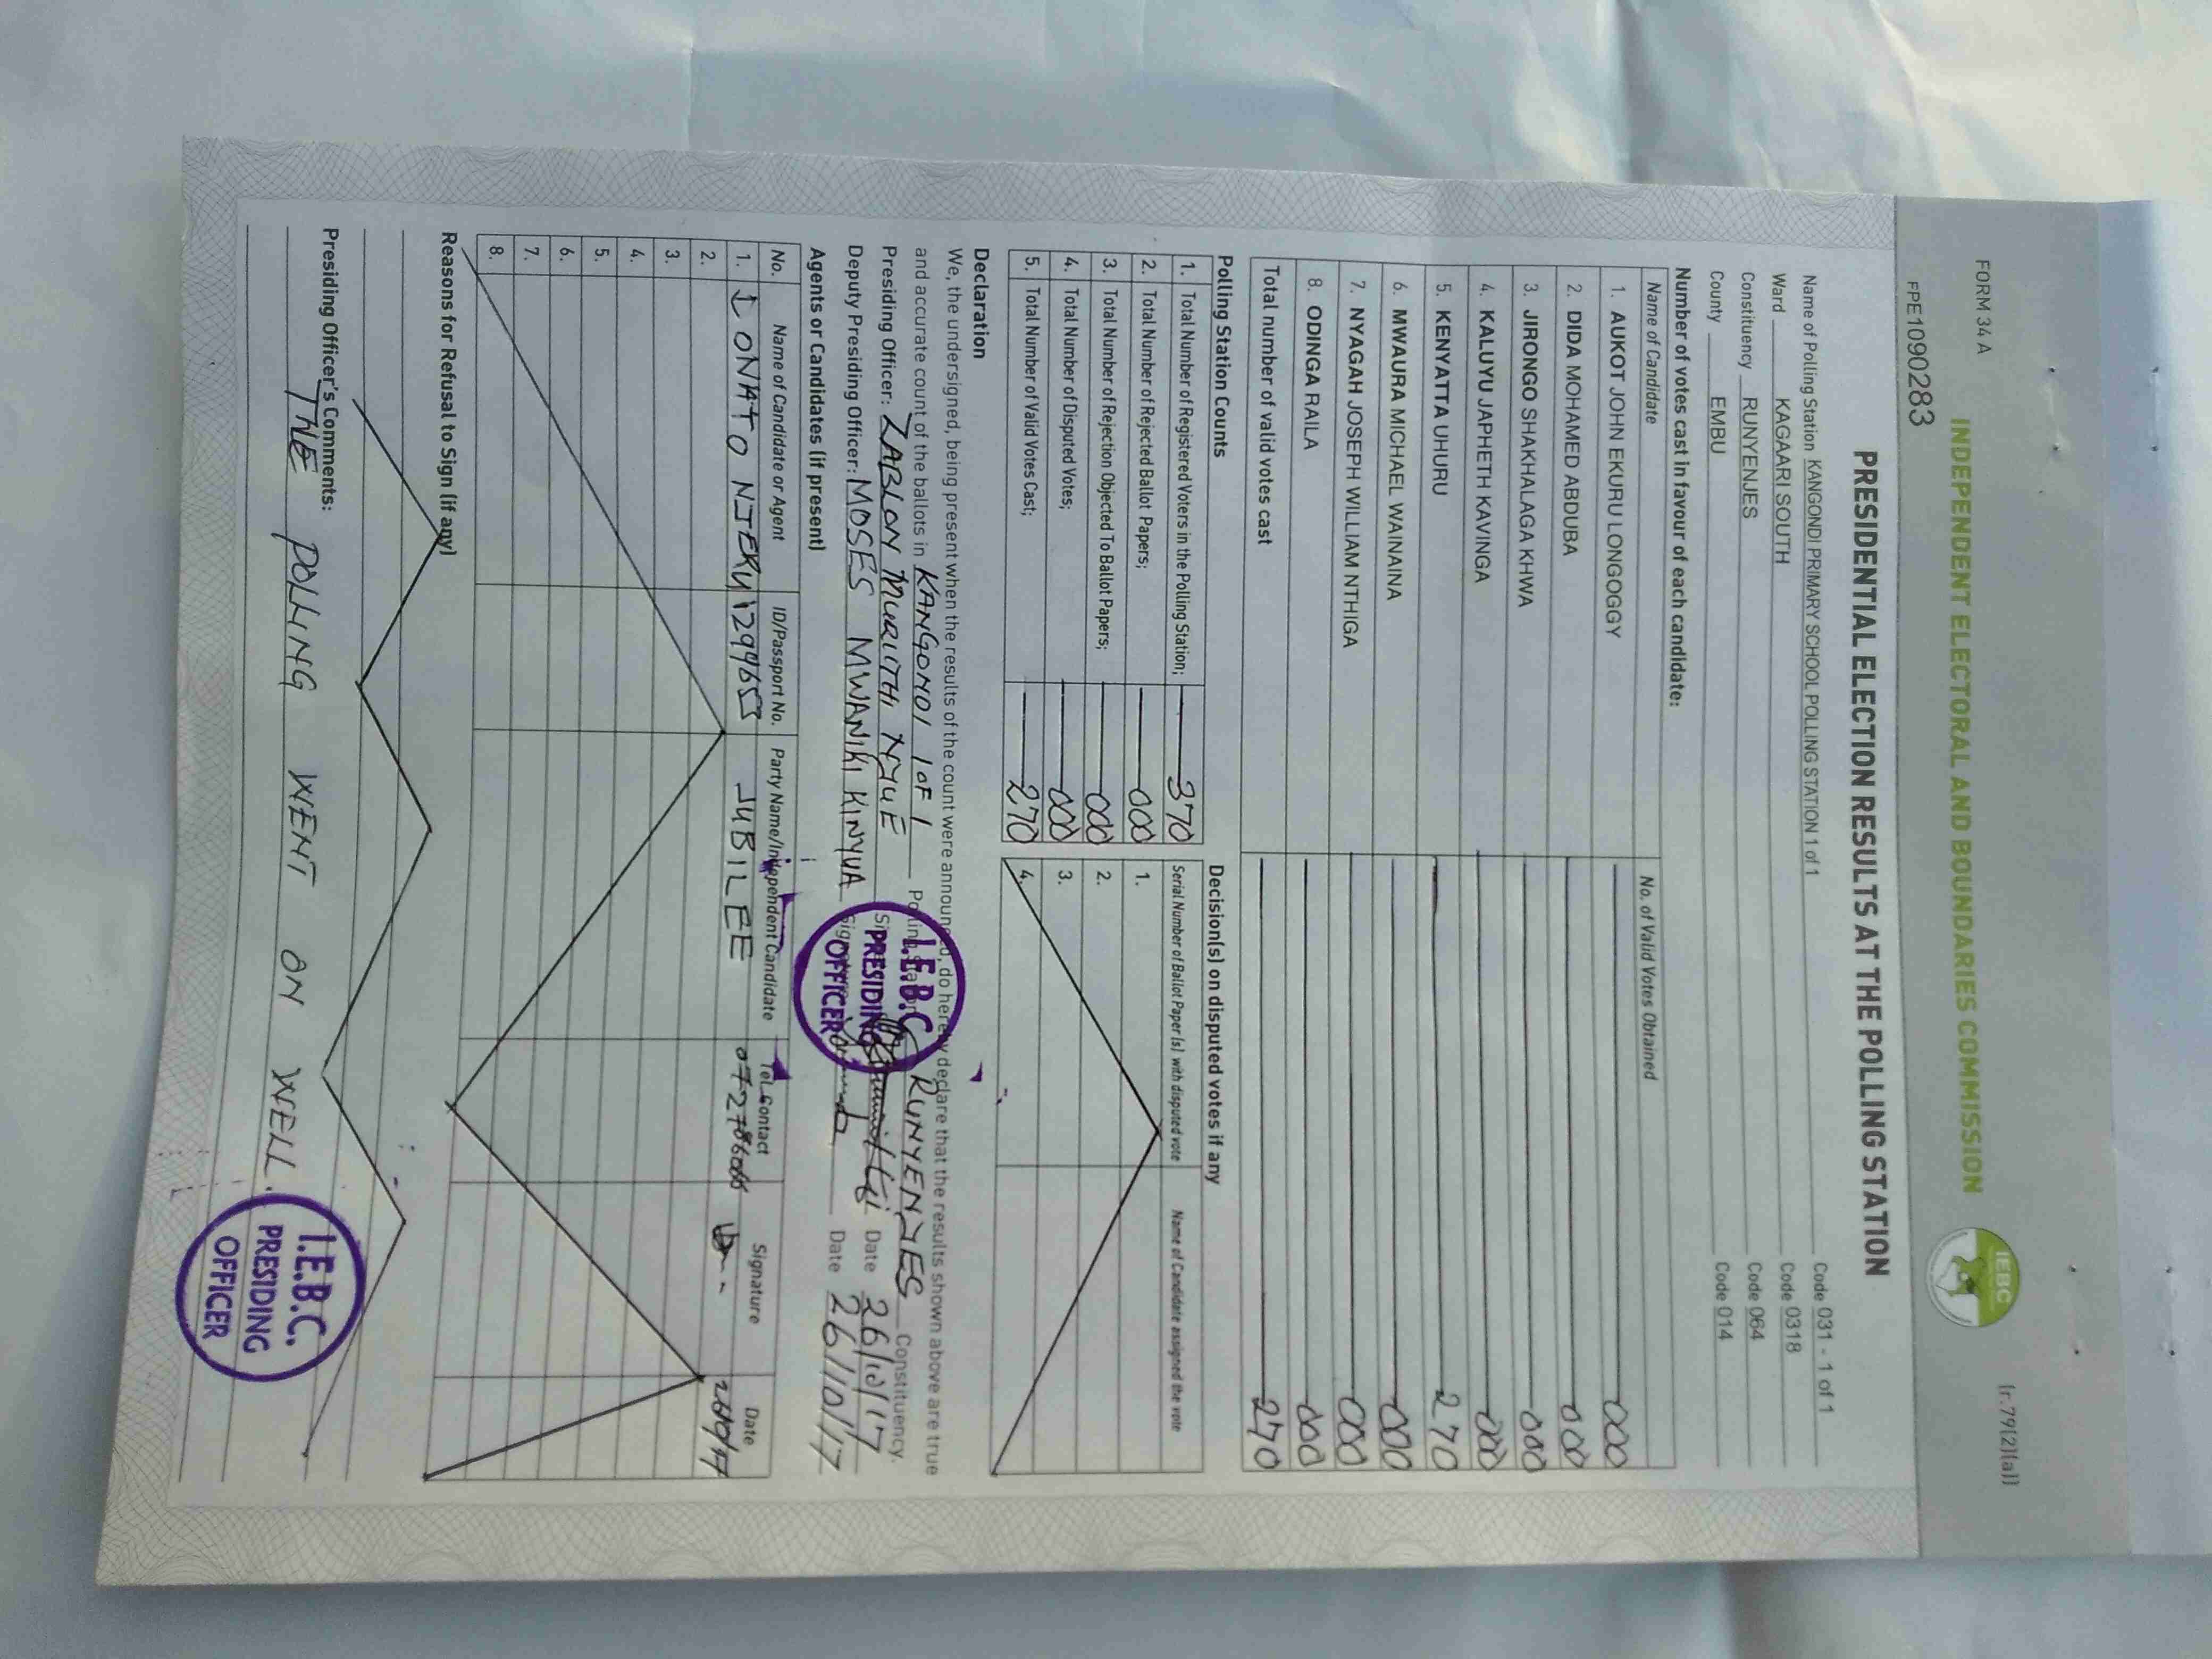 FORM 34 A
(r.79(2)(a))
INDEPENDENT ELECTORAL AND BOUNDARIES COMMISSION
IEBC
FPE1090283
PRESIDENTIAL ELECTION RESULTS AT THE POLLING STATION
Name of Polling Station KANGONDI PRIMARY SCHOOL POLLING STATION 1 of 1 Code 031 - 1 of 1
Ward KAGAARI SOUTH Code 0318
Constituency RUNYENJES Code 064
County EMBU Code 014
Number of votes cast in favour of each candidate:
Name of Candidate No. of Valid Votes Obtained
1. AUKOT JOHN EKURU LONGOGGY 000
2. DIDA MOHAMED ABDUBA 000
3. JIRONGO SHAKHALAGA KHWA 000
4. KALUYU JAPHETH KAVINGA 000
5. KENYATTA UHURU 270
6. MWAURA MICHAEL WAINAINA 000
7. NYAGAH JOSEPH WILLIAM NTHIGA 000
8. ODINGA RAILA 000
Total number of valid votes cast 270
Polling Station Counts
1. Total Number of Registered Voters in the Polling Station; 370
2. Total Number of Rejected Ballot Papers; 000
3. Total Number of Rejection Objected To Ballot Papers; 000
4. Total Number of Disputed Votes; 000
5. Total Number of Valid Votes Cast; 270
Decision(s) on disputed votes if any
Serial Number of Ballot Paper (s) with disputed vote Name of Candidate assigned the vote
1.
2.
3.
4.
Declaration
We, the undersigned, being present when the results of the count were announced, do hereby declare that the results shown above are true
and accurate count of the ballots in KANGONDI 1 OF 1 Polling Station RUNYENJES Constituency.
Presiding Officer: ZABLON MURIITHI NYUE Date 26/10/17
Deputy Presiding Officer: MOSES MWANIKI KINYUA Date 26/10/17
I.E.B.C.
PRESIDING
OFFICER
Agents or Candidates (if present)
No. Name of Candidate or Agent ID/Passport No. Party Name/Independent Candidate Tel. Contact Signature Date
1. NJERU JUBILEE
2.
3.
4.
5.
6.
7.
8.
Reasons for Refusal to Sign (if any)
Presiding Officer's Comments:
THE POLLING WENT ON WELL.
I.E.B.C.
PRESIDING
OFFICER